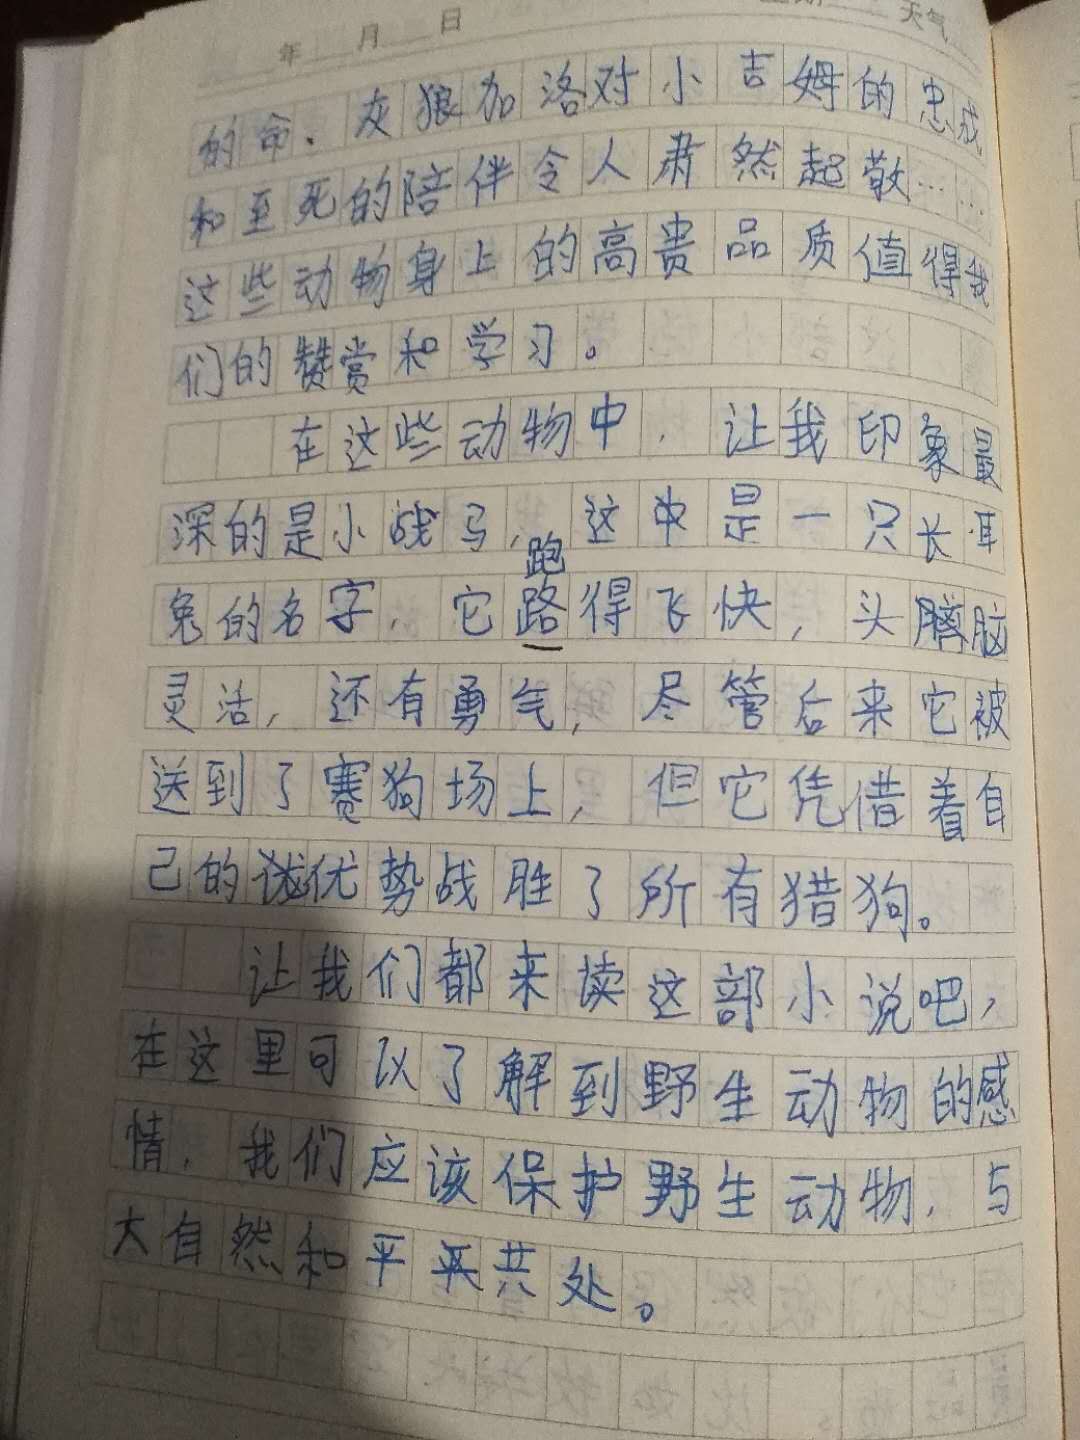 年 月 日 天气
的命。灰狼加洛对小吉姆的忠成
和至死的陪伴令人肃然起敬……
这些动物身上的高贵品质值得我
们的赞赏和学习。
在这些动物中，让我印象最
深的是小战马，这中是一只长耳
跑
兔的名字，它路得飞快，头脑
灵活，还有勇气，尽管后来它被
送到了赛狗场上，但它凭借着自
己的优势战胜了所有猎狗。
让我们都来读这部小说吧，
在这里可以了解到野生动物的感
情，我们应该保护野生动物，与
大自然和平共处。